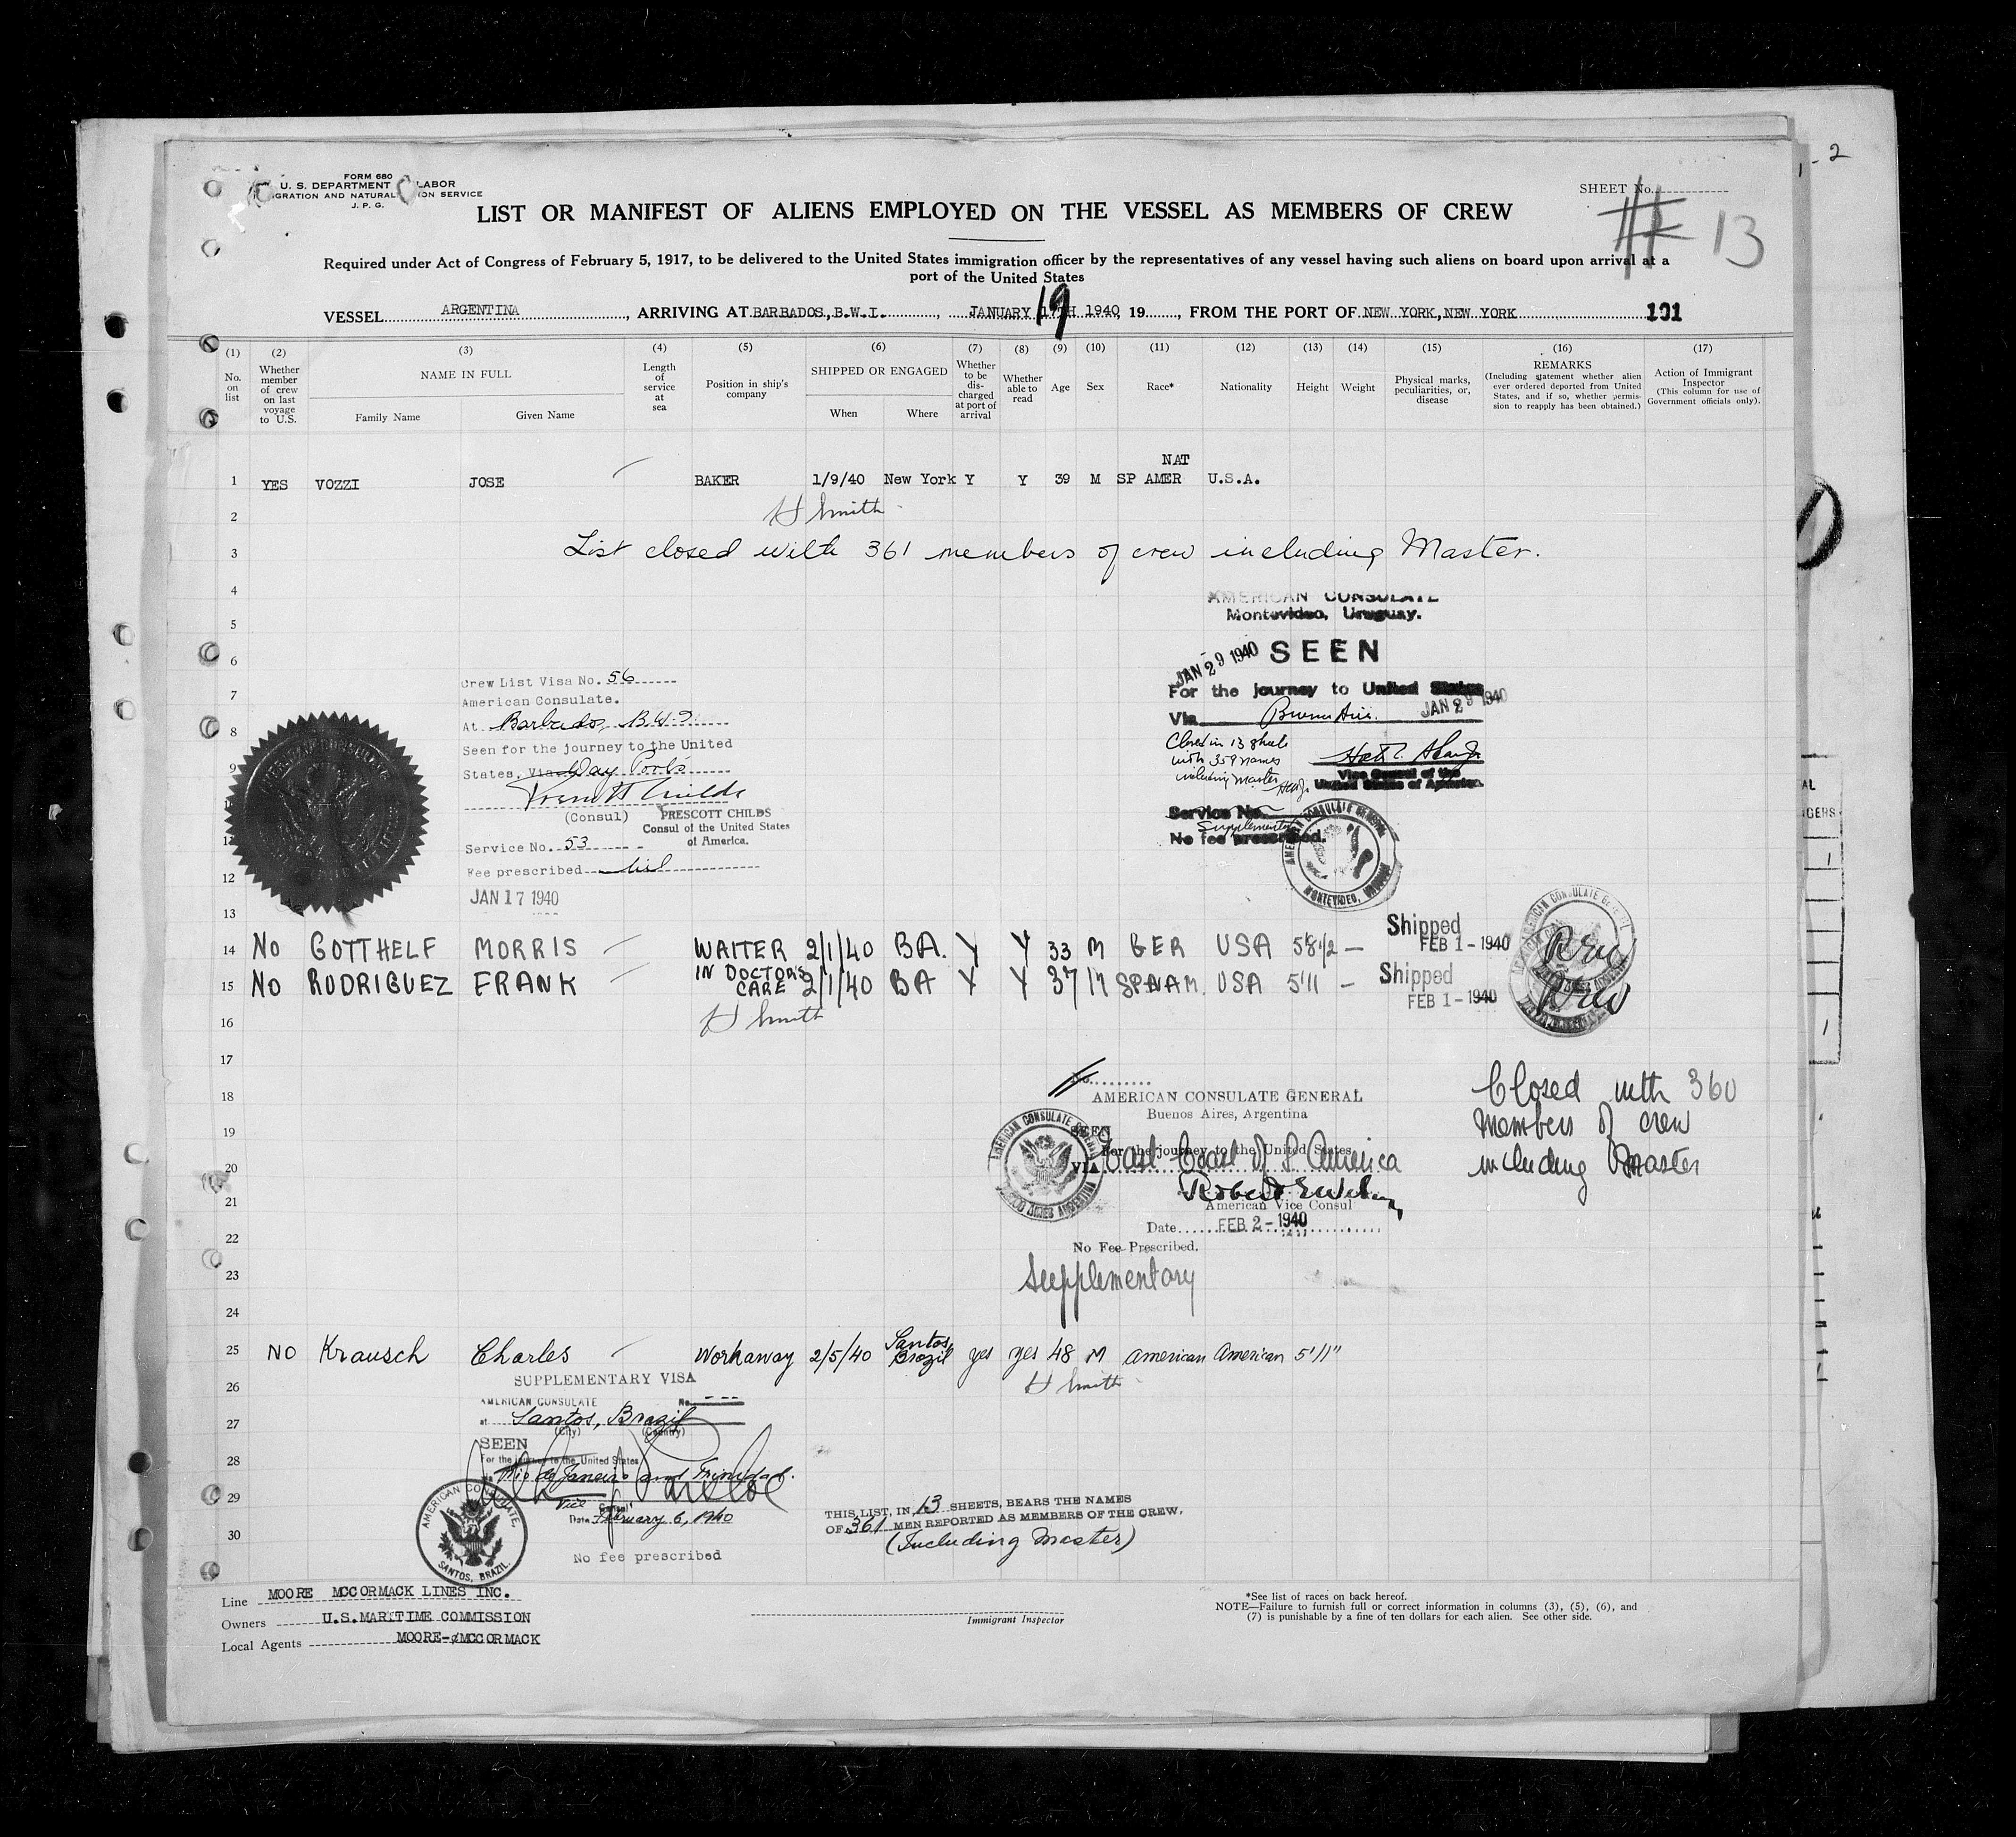 FORM 680
U. S. DEPARTMENT LABOR
GRATION AND NATURAL ION SERVICE
J. P. G.
SHEET No.
# 13
LIST OR MANIFEST OF ALIENS EMPLOYED ON THE VESSEL AS MEMBERS OF CREW
Required under Act of Congress of February 5, 1917, to be delivered to the United States immigration officer by the representatives of any vessel having such aliens on board upon arrival at a
port of the United States
VESSEL ARGENTINA, ARRIVING AT BARBADOS, B.W.I., JANUARY 19TH 1940, 19, FROM THE PORT OF NEW YORK, NEW YORK 101
(1) (2) (3) (4) (5) (6) (7) (8) (9) (10) (11) (12) (13) (14) (15) (16) (17)
No. on list
Whether member of crew on last voyage to U.S.
NAME IN FULL
Family Name
Given Name
Length of service at sea
Position in ship's company
SHIPPED OR ENGAGED
When
Where
Whether to be discharged at port of arrival
Whether able to read
Age
Sex
Race*
Nationality
Height
Weight
Physical marks, peculiarities, or, disease
REMARKS
(Including statement whether alien ever ordered deported from United States, and if so, whether permission to reapply has been obtained.)
Action of Immigrant Inspector
(This column for use of Government officials only).
NAT
1 YES VOZZI JOSE BAKER 1/9/40 New York Y Y 39 M SP AMER U.S.A.
2 H Smith
3 List closed with 361 members of crew including Master.
4
AMERICAN CONSULATE
5
Montevideo, Uruguay.
6
SEEN
JAN 29 1940
For the journey to United States
JAN 29 1940
Via Buenos Aires.
Closed in 13 sheets
with 359 names
including Master
Vice Consul of the
United States of America.
Service No.
Supplemental
No fee prescribed.
AMERICAN CONSULATE GENERAL MONTEVIDEO, URUGUAY
Crew List Visa No. 56
7
American Consulate.
8
At Barbados, B.W.I.
Seen for the journey to the United
9
States, Via Way Ports
Prescott Childs
(Consul)
PRESCOTT CHILDS
Consul of the United States
of America.
Service No. 53
12
Fee prescribed nil
JAN 17 1940
13
14 NO GOTTHELF MORRIS WAITER 2/1/40 BA. Y Y 33 M GER USA 5'8 1/2 — Shipped
FEB 1 - 1940
15 NO RODRIGUEZ FRANK IN DOCTOR'S CARE 2/1/40 BA Y Y 37 M SPNAM. USA 5'11 — Shipped
FEB 1 - 1940
16 H Smith
17
18
No.
AMERICAN CONSULATE GENERAL
Buenos Aires, Argentina
19
SEEN
For the journey to the United States
20
VIA East Coast of S America
21
American Vice Consul
Date FEB 2 - 1940
22
No Fee Prescribed.
23
Supplementary
Closed with 360
members of crew
including Master
24
25 NO Krausch Charles Workaway 2/5/40 Santos, Brazil yes yes 48 M American American 5'11"
26 H Smith
SUPPLEMENTARY VISA
AMERICAN CONSULATE No.
27
at Santos, Brazil
(City) (Country)
SEEN
28
For the journey to the United States
via Rio de Janeiro and Trinidad.
29
Vice Consul
Date February 6, 1940
30
No fee prescribed
AMERICAN CONSULATE, SANTOS, BRAZIL.
THIS LIST, IN 13 SHEETS, BEARS THE NAMES
OF 361 MEN REPORTED AS MEMBERS OF THE CREW.
(Including Master)
Line MOORE MCCORMACK LINES INC.
Owners U.S.MARITIME COMMISSION
Local Agents MOORE-MCCORMACK
Immigrant Inspector
*See list of races on back hereof.
NOTE—Failure to furnish full or correct information in columns (3), (5), (6), and
(7) is punishable by a fine of ten dollars for each alien. See other side.